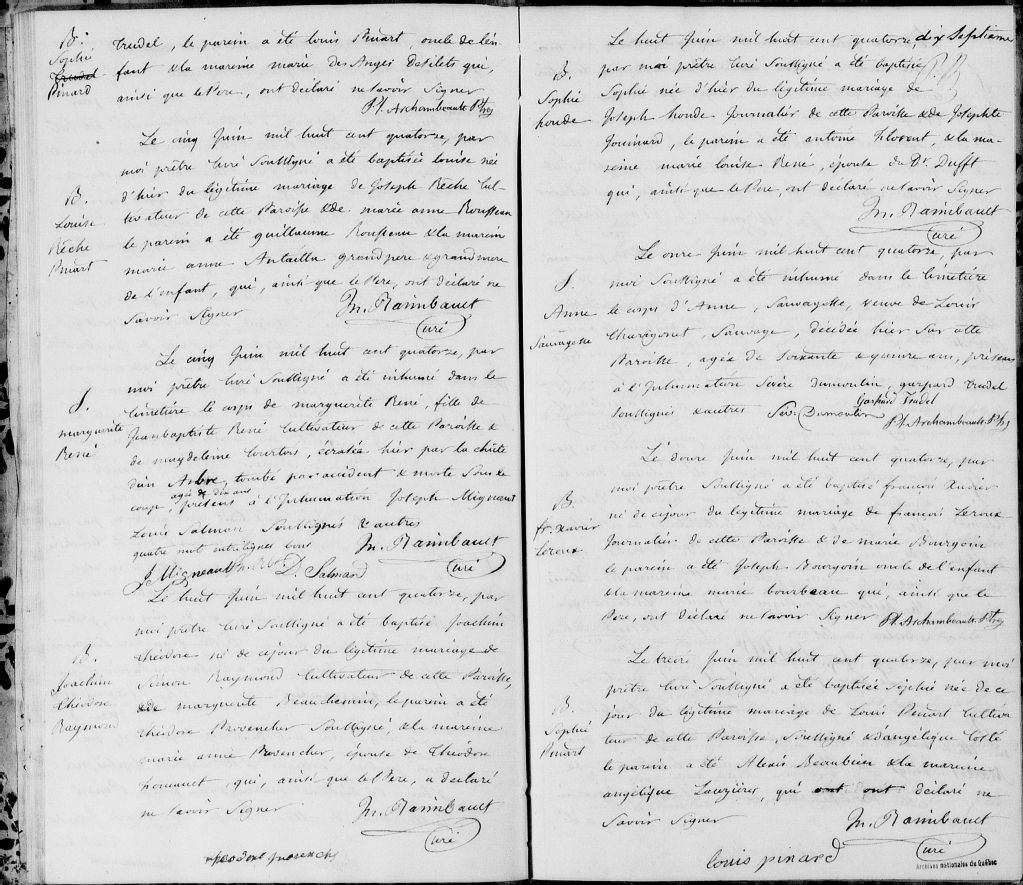 B.
Sophie
Trudel
Pinard
Trudel, le parein a été louis Pinart, oncle de l'en-
fant & la mareine marie des Anges Desilets qui,
ainsi que le Pere, ont déclaré ne savoir Signer
Pl. Archambeault Ptre
B.
Louise
Bêche
Pinart
Le cinq Juin mil huit cent quatorze, par
moi prêtre Curé Soussigné a été baptisée Louise née
d'hier du légitime mariage de Joseph Bêche Cul-
tivateur de cette Paroisse & de marie anne Rousseau
le parein a été guillaume Rousseau & la mareine
marie anne grandpere & grandmere
de l'enfant, qui, ainsi que le Pere, ont déclaré ne
Savoir Signer
Jn. Raimbault
Curé
S.
marguerite
René
Le cinq Juin mil huit cent quatorze, par
moi prêtre Curé Soussigné a été inhumé dans le
Cimetière le corps de marguerite René, fille de
Jeanbaptiste René Cultivateur de cette Paroisse &
de magdeleine Courtois, écrasée hier par la chûte
d'un Arbre, tombé par accident & morte Sous le
agée de dix ans
coup, présens à l'Inhumation Joseph Migneau
Louis Salmon Soussignés & autres
quatre mot entrelignes bons
Jn. Raimbault
Curé
J Migneault
D. Salmard
B.
Joachim
théodore
Raymond
Le huit Juin mil huit cent quatorze, par
moi prêtre Curé Soussigné a été baptisé Joachim
théodore né de cejour du légitime mariage de
Simon Raymond Cultivateur de cette Paroisse,
& de marguerite Beauchemin, le parein a été
théodore Provencher Soussigné, & la mareine
marie anne Provencher, épouse de Théodore
qui, ainsi que le Pere, a déclaré
ne savoir Signer
Jn. Raimbault
Curé
B.
Sophie
houde
Le huit Juin mil huit cent quatorze, dix Septieme
par moi prêtre Curé Soussigné a été baptisée
Sophie née d'hier du légitime mariage de
Joseph houde Journalier de cette Paroisse & de Josephte
Jouinard, le parein a été antoine florent, & la ma-
reine marie louise René, épouse du Dr. Dufft
qui, ainsi que le Pere, ont déclaré ne savoir Signer
Jn. Raimbault
Curé
S.
Anne
Sauvagesse
Le onze Juin mil huit cent quatorze, par
moi Soussigné a été inhumé dans le Cimetière
le corps d'Anne, Sauvagesse, veuve de Louis
Sauvage, décédée hier Sur cette
Paroisse, agée de Soixante & quinze ans, présens
à l'Inhumation Sévère dumoulin, gaspard trudel
Soussignés & autres
Gaspard Trudel
Sév. Dumoulin
Pl. Archambeault Ptre
B.
fr. xavier
Leroux
Le douze Juin mil huit cent quatorze, par
moi prêtre Curé Soussigné a été baptisé françois Xavier
né de cejour du légitime mariage de françois Leroux
Journalier de cette Paroisse & de marie Bourgoin
le parein a été Joseph Bourgoin oncle de l'enfant
& la mareine marie bourbeau qui, ainsi que le
Pere, ont déclaré ne savoir Signer Pl. Archambeault Ptre
B.
Sophie
Pinart
Le treize Juin mil huit cent quatorze, par moi
prêtre Curé Soussigné a été baptisée Sophie née de ce
jour du légitime mariage de Louis Pinart Cultiva
teur de cette Paroisse, Soussigné & d'angélique Coté
le parein a été Alexis Beaubien & la mareine
angélique Lauzière, qui ont ont déclaré ne
Savoir Signer
Jn. Raimbault
Curé
louis pinard
Archives nationales du Québec